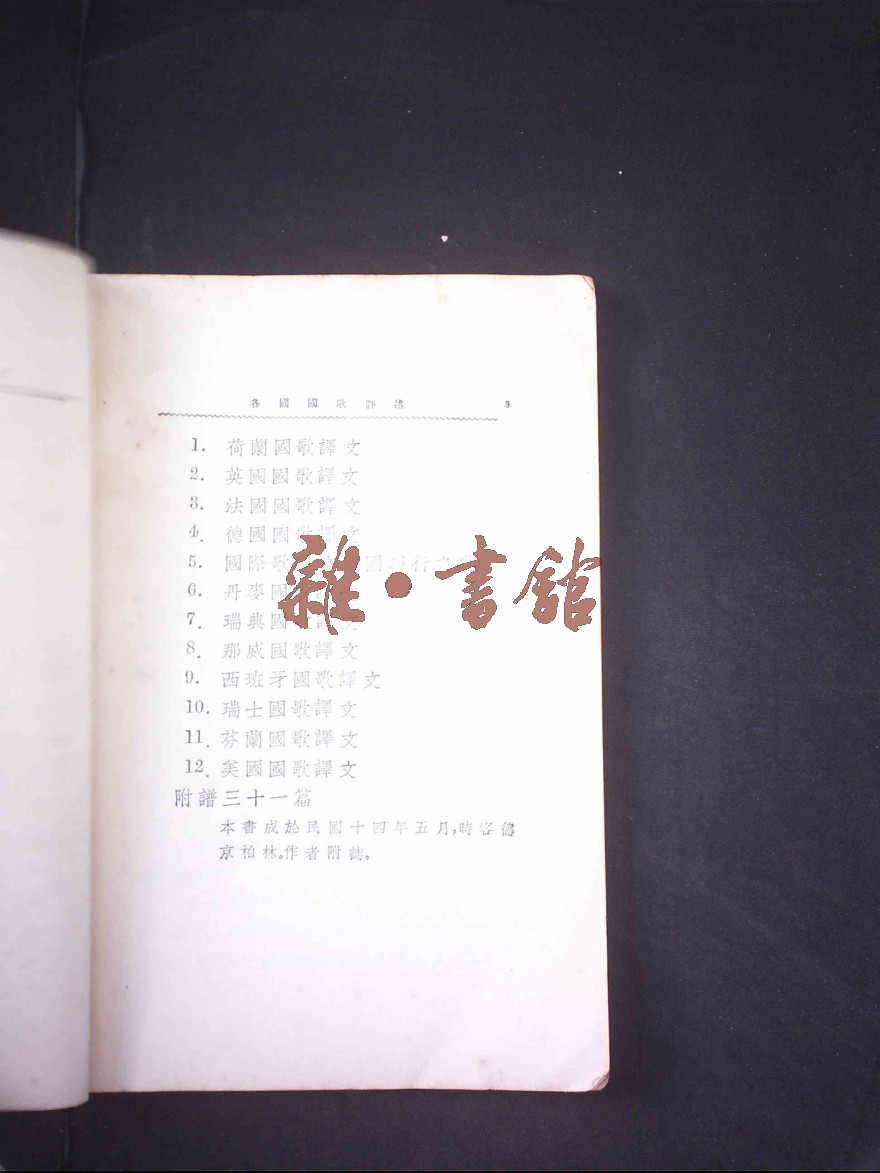 各國國歌評述 3
1. 荷蘭國歌譯文
2. 英國國歌譯文
3. 法國國歌譯文
4. 德國國歌譯文
5. 國際歌 國 行之
6. 丹麥國
7. 瑞典國歌譯文
8. 那威國歌譯文
9. 西班牙國歌譯文
10. 瑞士國歌譯文
11. 芬蘭國歌譯文
12. 美國國歌譯文
附譜三十一篇
本書成於民國十四年五月,時客德
京柏林。作者附誌。
雜·書館